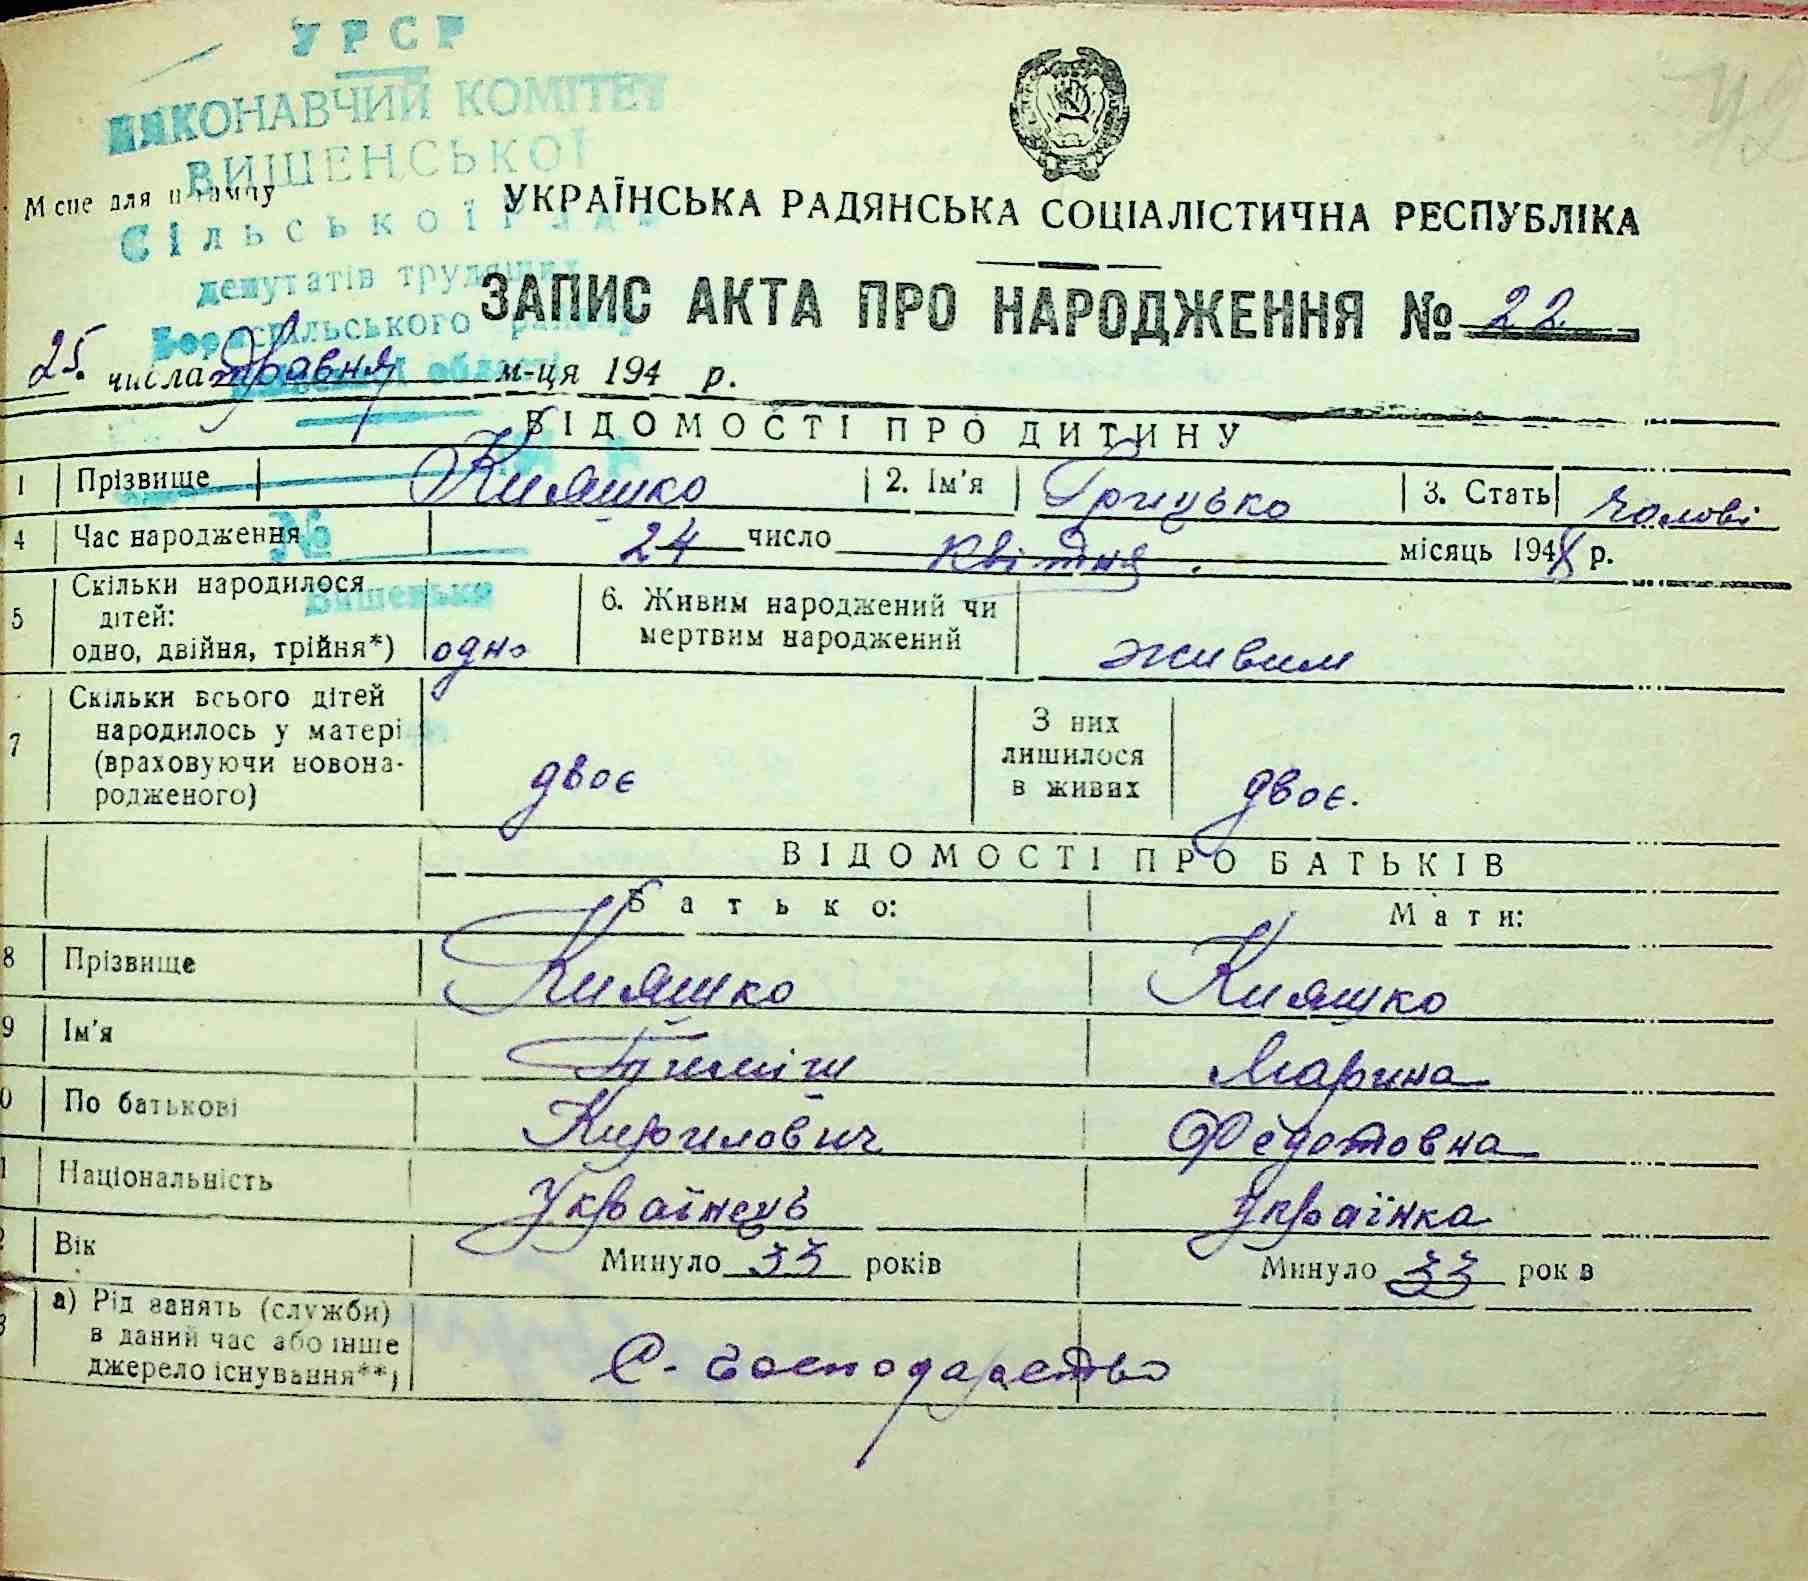 УРСР
ВИКОНАВЧИЙ КОМІТЕТ
ВИШЕНСЬКОЇ
Місце для штампу
Сільської Ради
депутатів трудящих
Бориспільського району
області
№
Вишеньки
УКРАЇНСЬКА РАДЯНСЬКА СОЦІАЛІСТИЧНА РЕСПУБЛІКА
ЗАПИС АКТА ПРО НАРОДЖЕННЯ № 22
25. числа травня м-ця 194 р.
ВІДОМОСТІ ПРО ДИТИНУ
1 Прізвище Кияшко 2. Ім'я Грицько 3. Стать Чолові
4 Час народження 24 число квітня. місяць 194 р.
5 Скільки народилося дітей: одно, двійня, трійня*) одно 6. Живим народжений чи мертвим народжений живим
7 Скільки всього дітей народилось у матері (враховуючи новонародженого) двоє З них лишилося в живих двоє.
ВІДОМОСТІ ПРО БАТЬКІВ
Батько: Мати:
8 Прізвище Кияшко Кияшко
9 Ім'я Тиміш Марина
0 По батькові Кирилович Федотовна
1 Національність Українець Українка
2 Вік Минуло 33 років Минуло 33 рок в
3 а) Рід занять (служби) в даний час або інше джерело існування**) С-господарство